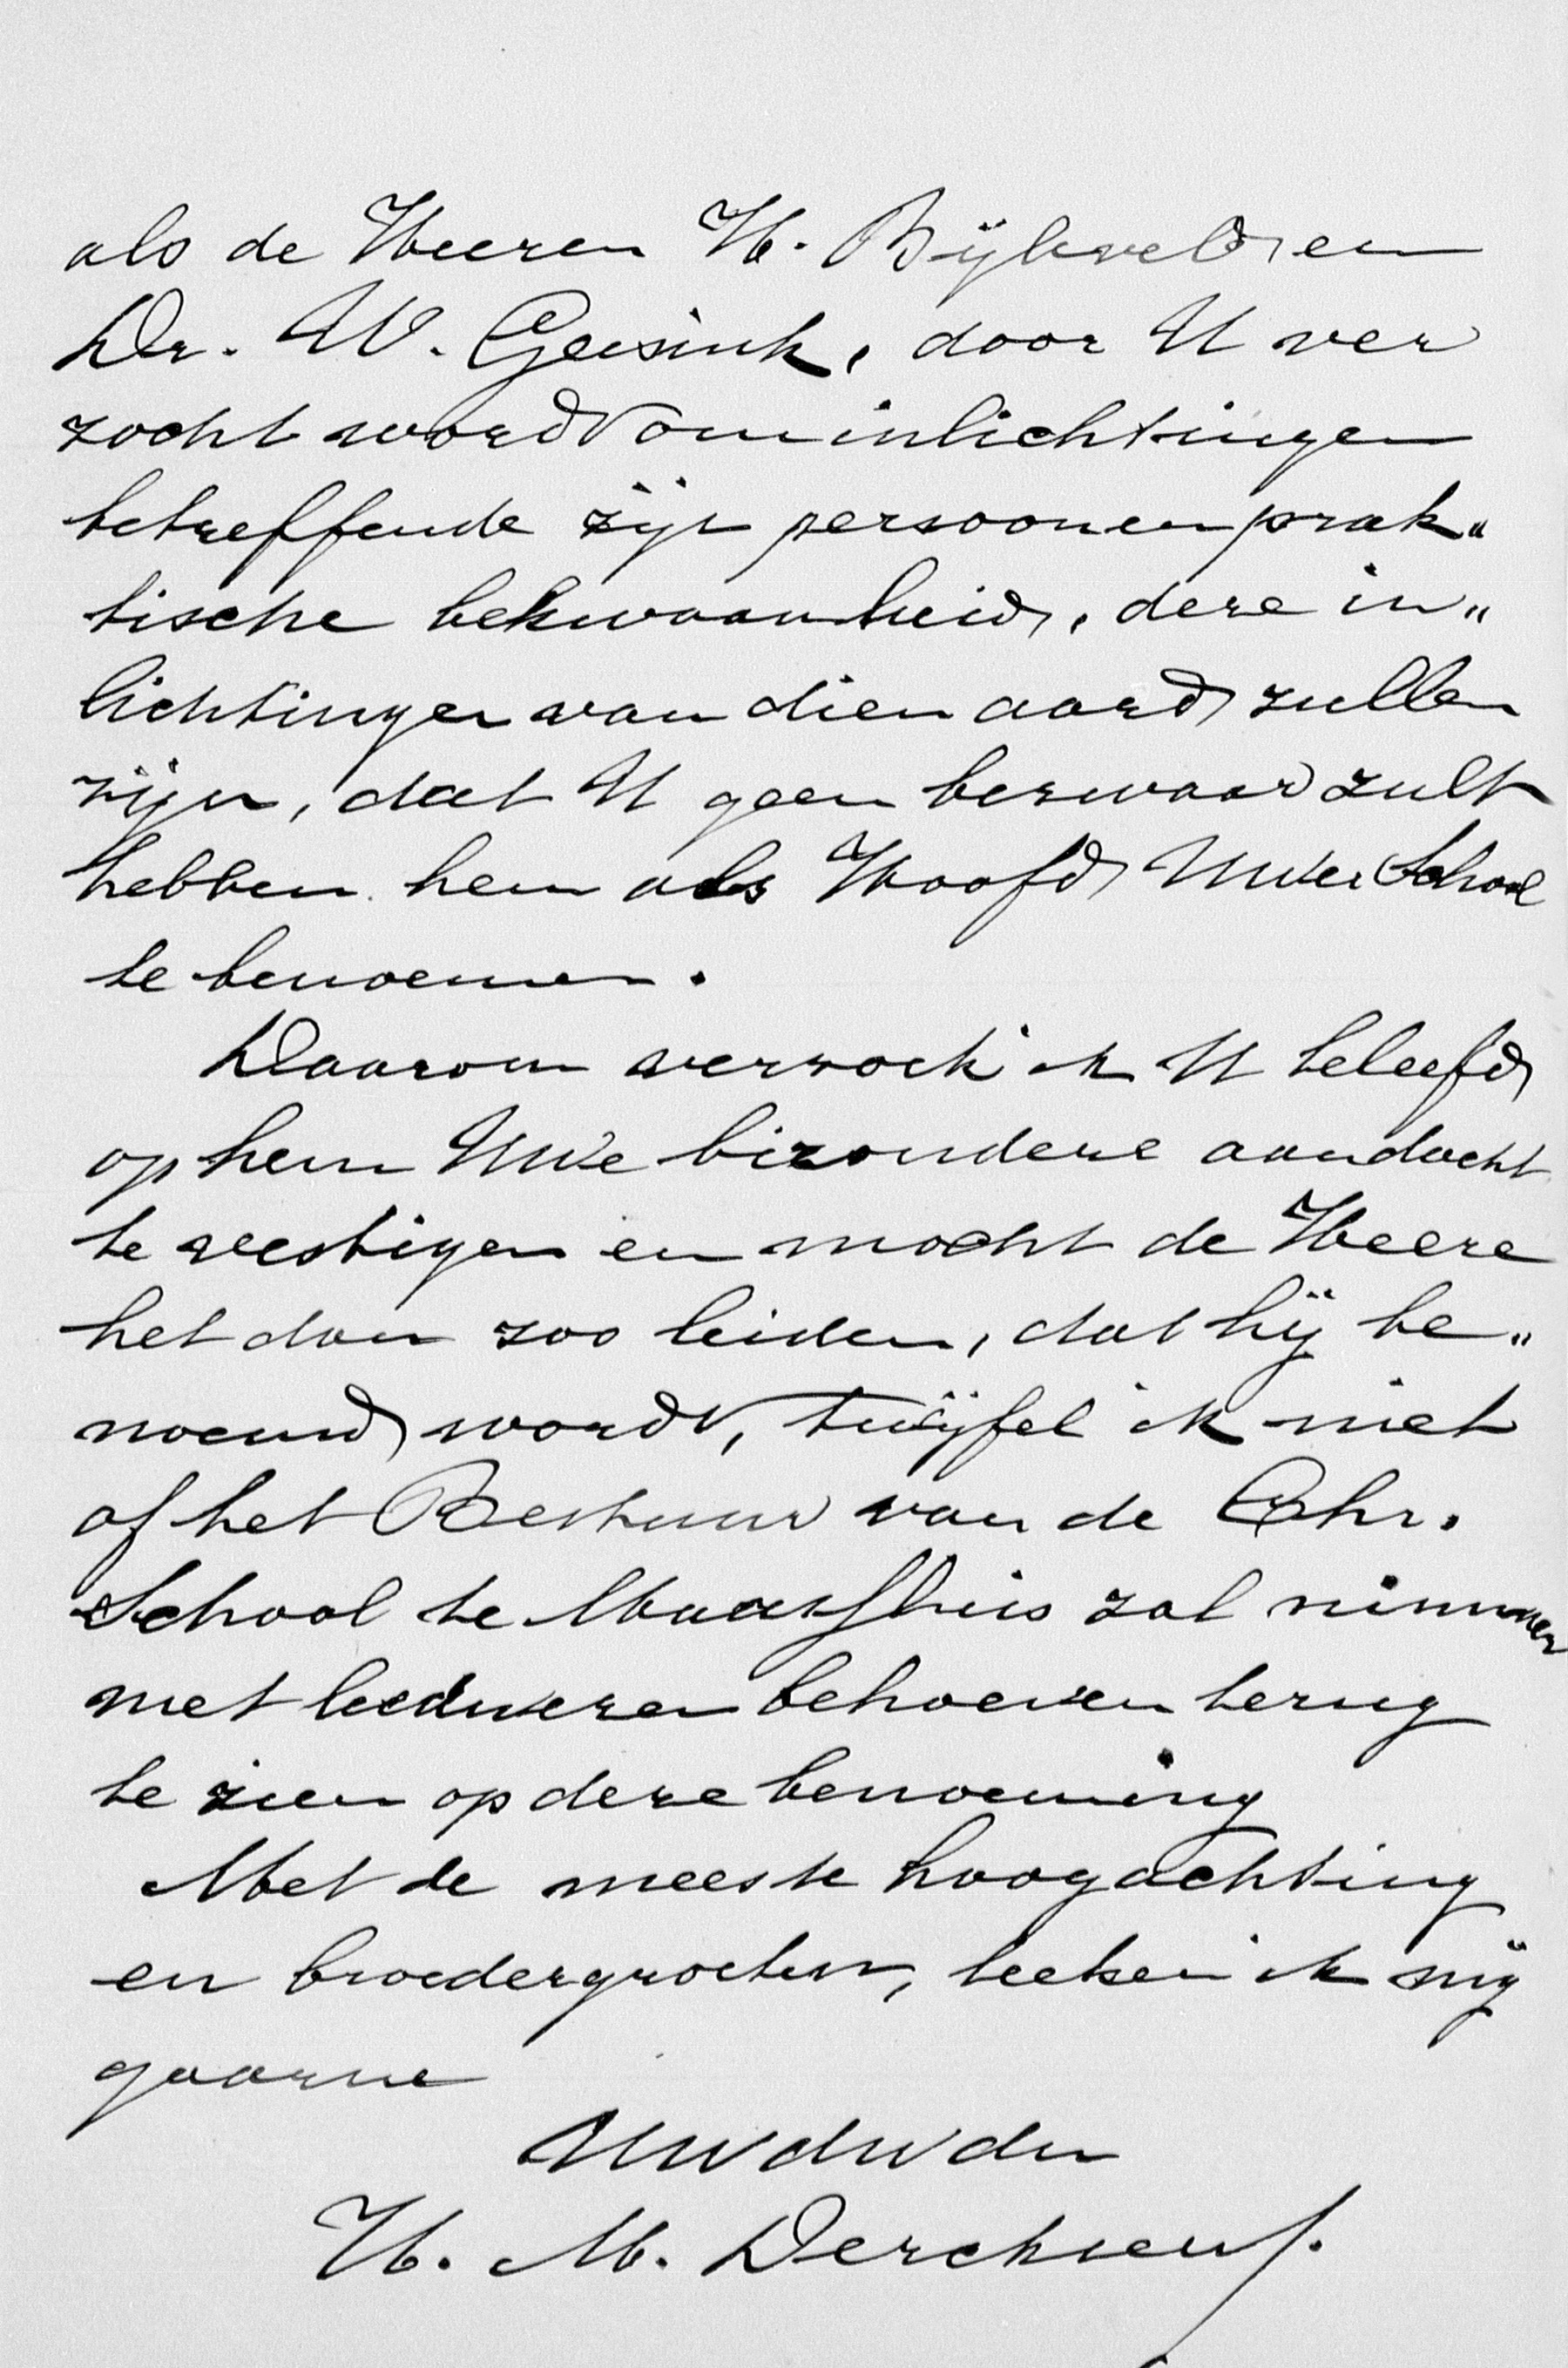 als de Heeren H. Bijleveld en
Dr. W. Geesink, door U ver
zocht wordt om inlichtingen
betreffende zijn persoon en prak„
tische bekwaamheid, deze in„
lichtingen van dien aard zullen
zijn, dat U geen bezwaar zult
hebben hem als Hoofd Uwer School
te benoemen.
Daarom verzoek ik U beleefd
op hem Uwe bizondere aandacht
te vestigen en mocht de Heere
het dan zoo leiden, dat hij be„
noemd wordt, twijfel ik niet
of het Bestuur van de Chr.
School te Maassluis zal nimmer
met leedwezen behoeven terug
te zien op deze benoeming
Met de meeste hoogachting
en broedergroeten, teeken ik mij
gaarne
Uwdwdn
H. M. Dercksen